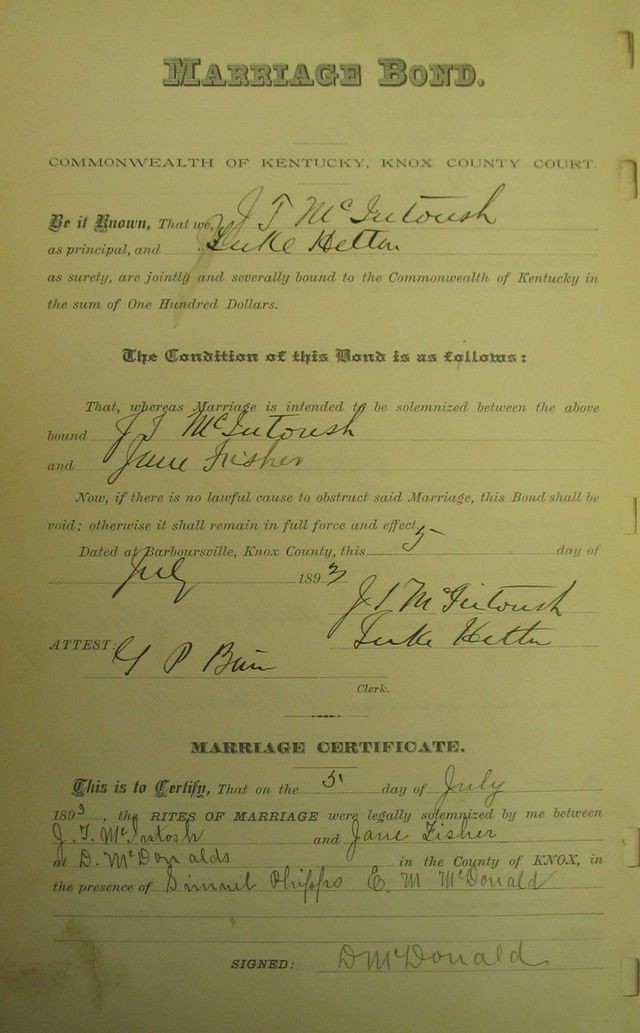 MARRIAGE BOND.
COMMONWEALTH OF KENTUCKY, KNOX COUNTY COURT.
Be it Known, That we, J T McIntoush
as principal, and Luke Hetton
as surety, are jointly and severally bound to the Commonwealth of Kentucky in
the sum of One Hundred Dollars.
The Condition of this Bond is as follows:
That, whereas Marriage is intended to be solemnized between the above
bound J T McIntoush
and Jane Fisher
Now, if there is no lawful cause to obstruct said Marriage, this Bond shall be
void; otherwise it shall remain in full force and effect.
Dated at Barboursville, Knox County, this 5 day of
July 1893
J T McIntoush
Luke Hetton
ATTEST: P
Clerk.
MARRIAGE CERTIFICATE.
This is to Certify, That on the 5 day of July
1893, the RITES OF MARRIAGE were legally solemnized by me between
J. T. McIntosh and Jane Fisher
at D. McDonalds in the County of KNOX, in
the presence of Phipps E. M McDonald
SIGNED: D McDonald